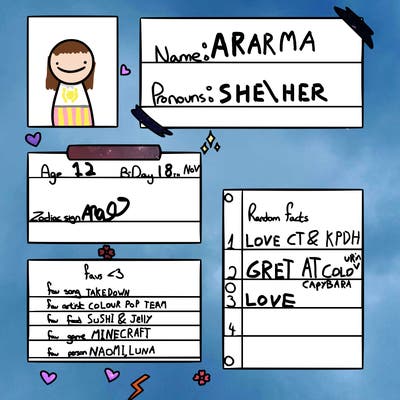 Name: ARARMA
Pronouns: SHE\HER
Age 12 BiDay 18th Nov
Zodiac sign
favs <3
fav song TAKEDOWN
fav artist COLOUR POP TEAM
fav food SUSHI & Jelly
fav game MINECRAFT
fav person NAOMI, LUNA
Random facts
1 LOVE CT & KPDH
2 GRET AT COLOURN
3 LOVE CAPYBARA
4